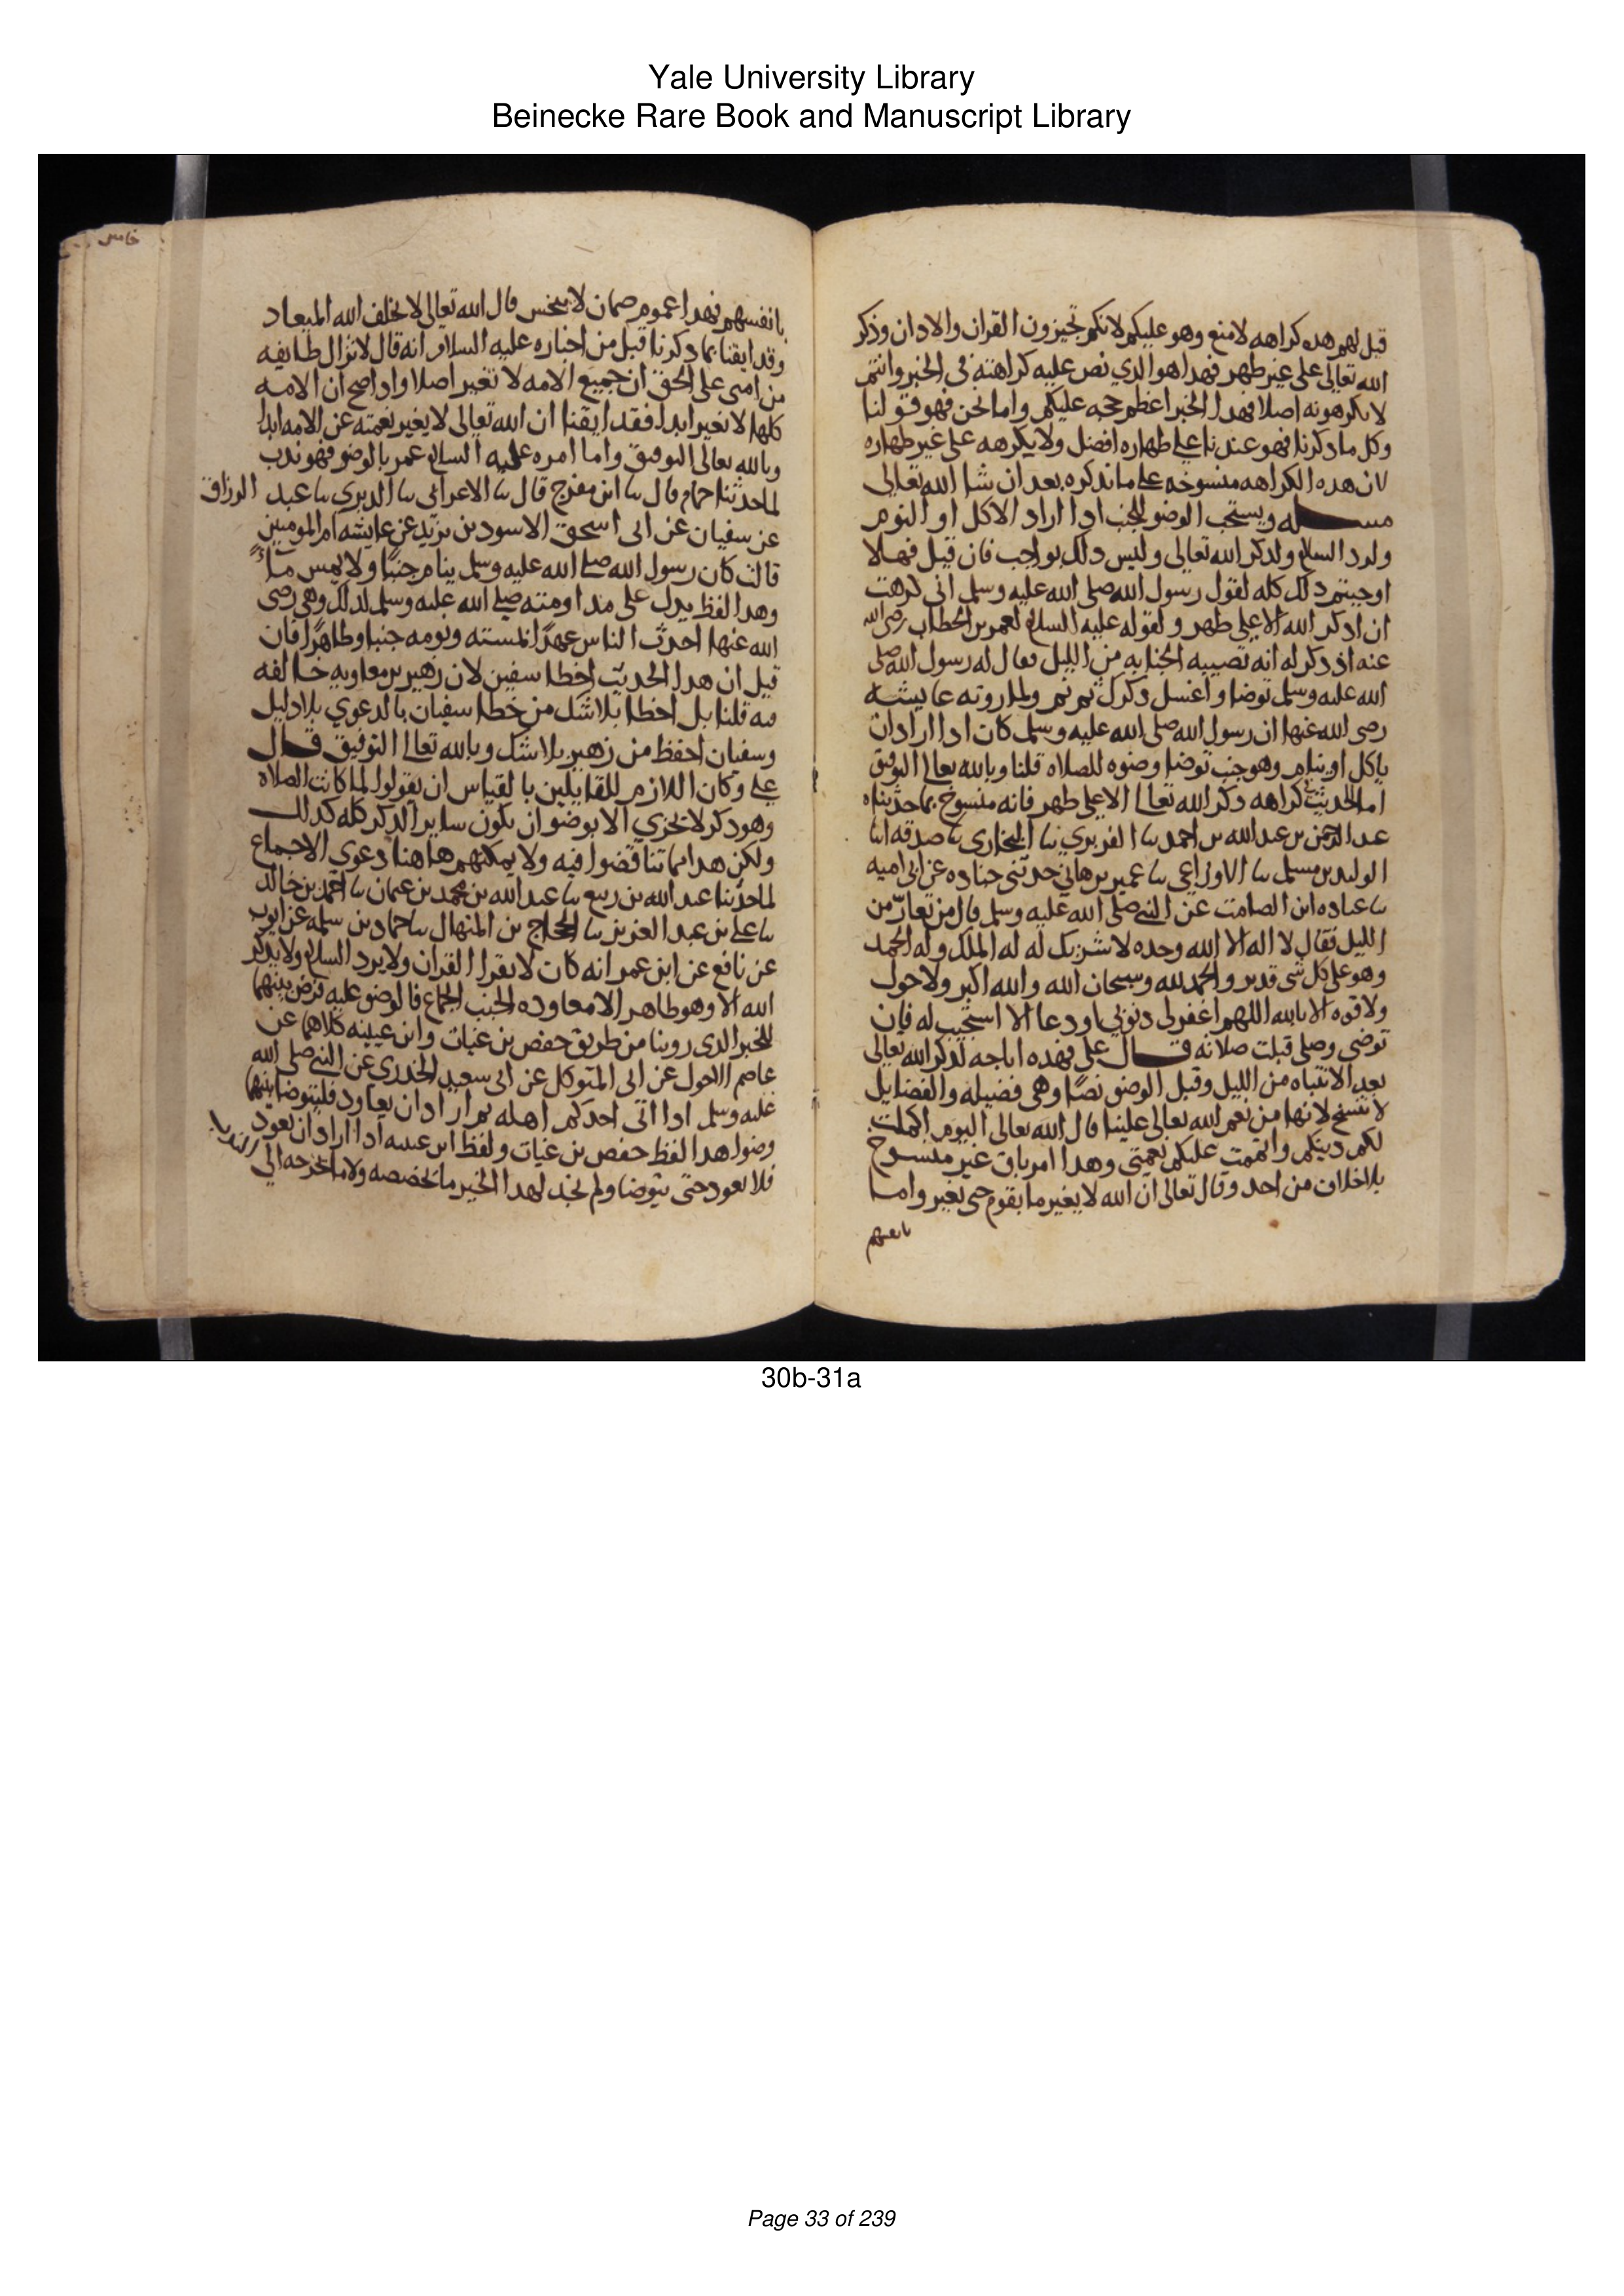 Yale University Library
Beinecke Rare Book and Manuscript Library
قيل لهم هده كراهه لا منع وهو عليكم لانكم تجيزون القران والادان وذكر
الله تعالى على غير طهر فهدا هو الدي نص عليه كراهته في الخبر وانتم
لا تكرهونه اصلا فهدا الخبر اعظم حجه عليكم واما نحن فهو قولنا
وكل ما دكرنا فهو عندنا على طهاره افضل ولا يكرهه على غير طهاره
لان هده الكراهه منسوخه على ما ندكره بعد ان شا الله تعالى
مسله ويستحب الوضو للجنب ادا اراد الاكل او النوم
ولرد السلام ولدكر الله تعالى وليس دلك بواجب فان قيل فهلا
اوجبتم دلك كله لقول رسول الله صلى الله عليه وسلم انى كرهت
ان ادكر الله الا على طهر ولقوله عليه السلام لعمر بن الخطاب رضى الله
عنه اذ دكر له انه تصيبه الجنابه من الليل فقال له رسول الله صلى
الله عليه وسلم توضا واغسل دكرك ثم نم ولما روته عايشه
رضى الله عنها ان رسول الله صلى الله عليه وسلم كان ادا اراد ان
ياكل او ينام وهو جنب توضا وضوه للصلاه قلنا وبالله تعالى التوفيق
اما الحديث كراهه دكر الله تعالى الا على طهر فانه منسوخ بما حدثناه
عبد الرحمن بن عبد الله بن احمد نا الفربري نا البخاري نا صدقه انا
الوليد بن مسلم نا الاوزاعي نا عمير بن هاني حدثني جناده عن ابي اميه
نا عباده ابن الصامت عن النبي صلى الله عليه وسلم قال من تعار من
الليل فقال لا اله الا الله وحده لا شريك له له الملك وله الحمد
وهو على كل شى قدير والحمد لله وسبحان الله والله اكبر ولا حول
ولا قوه الا بالله اللهم اغفر لي دنوبي او دعا الا استجيب له فان
توضى وصلى قبلت صلاته قال علي فهده اباحه لدكر الله تعالى
بعد الانتباه من الليل وقبل الوضو نصا وهى فضيله والفضايل
لا تنسخ لانها من نعم الله تعالى علينا قال الله تعالى اليوم اكملت
لكم دينكم واتممت عليكم نعمتي وهدا امر باق غير منسوخ
بلا خلاف من احد وقال تعالى ان الله لا يغير ما بقوم حتى يغيروا ما
بانفسهم
بانفسهم فهدا عموم ضمان لا ينخس قال الله تعالى لا يخلف الله الميعاد
وقد ايقنا بما دكرنا قبل من اخباره عليه السلام انه قال لا تزال طايفه
من امتى على الحق ان جميع الامه لا تغير اصلا واداصح ان الامه
كلها لا تغير ابدا فقد ايقنا ان الله تعالى لا يغير نعمته عن الامه ابدا
وبالله تعالى التوفيق واما امره عليه السلام عمر بالوضو فهو ندب
لما حدثنا حمام قال نا ابن مفرج قال نا الاعرابي نا الدبري نا عبد الرزاق
عن سفيان عن ابى اسحق الاسود بن يزيد عن عايشه ام المومنين
قالت كان رسول الله صلى الله عليه وسلم ينام جنبا ولا يمس ماء
وهدا لفظ يدل على مداومته صلى الله عليه وسلم لدلك وهى رضى
الله عنها احدث الناس عهدا لمسته ونومه جنبا وطاهرا فان
قيل ان هدا الحديث اخطا سفين لان زهير بن معاويه خالفه
فيه قلنا بل اخطا بلا شك من خطا سفيان بالدعوي بلا دليل
وسفيان احفظ من زهير بلا شك وبالله تعالى التوفيق قال
علي وكان اللازم للقايلين بالقياس ان يقولوا لما كانت الصلاه
وهو دكر لا تجزي الا بوضو ان يكون ساير الدكر كله كدلك
ولكن هدا مما تناقضوا فيه ولا يمكنهم هاهنا دعوي الاجماع
لما حدثنا عبد الله بن ربيع نا عبد الله بن محمد بن عثمان نا احمد بن خالد
نا علي بن عبد العزيز نا الحجاج بن المنهال نا حماد بن سلمه عن ايوب
عن نافع عن ابن عمر انه كان لا يقرا القران ولا يرد السلام ولا يدكر
الله الا وهو طاهر الا معاوده الجنب الجماع فالوضو عليه فرض بينهما
للخبر الدى روينا من طريق حفص بن غياث وابن عيينه كلاهما عن
عاصم الاحول عن ابى المتوكل عن ابى سعيد الخدري عن النبي صلى الله
عليه وسلم ادا اتى احدكم اهله ثم اراد ان يعاود فليتوضا بينهما
وضوا هدا لفظ حفص بن غياث ولفظ ابن عيينه ادا اراد ان يعود
فلا يعود حتى يتوضا ولم نجد لهدا الخبر ما يخصصه ولا ما يخرجه الى الندب
30b-31a
Page 33 of 239